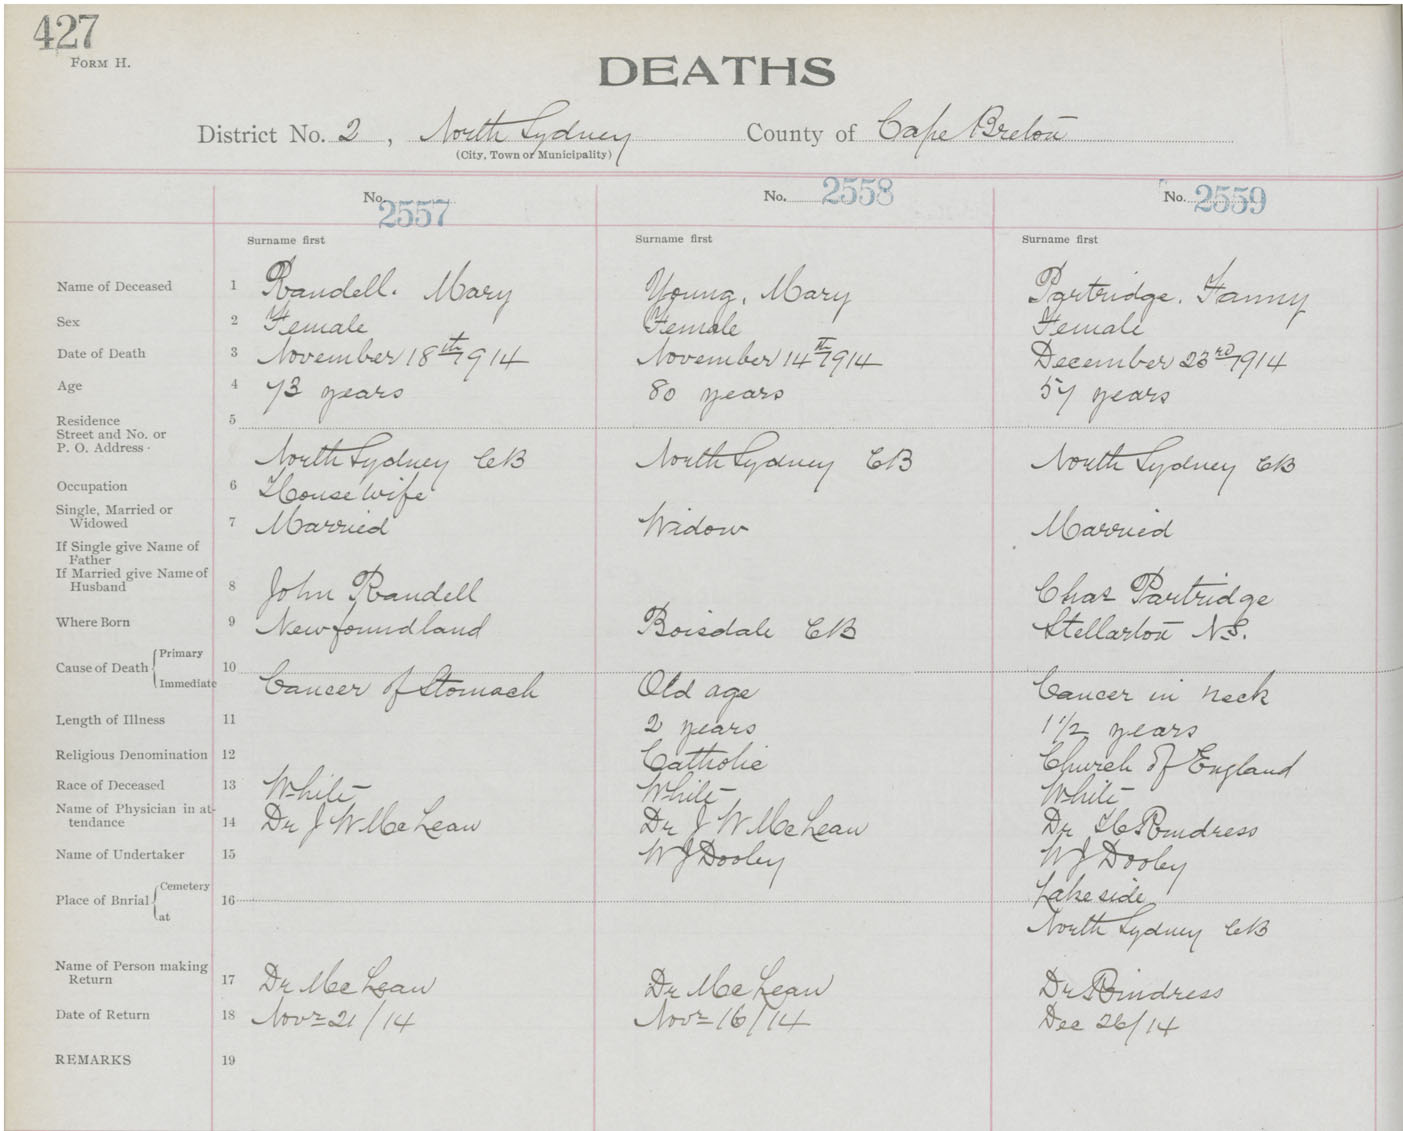 427
FORM H.
DEATHS
District No. 2, North Sydney County of Cape Breton
(City, Town or Municipality)
No. 2557 No. 2558 No. 2559
Surname first Surname first Surname first
Name of Deceased 1 Randell. Mary Young, Mary Partridge. Fanny
Sex 2 Female Female Female
Date of Death 3 November 18th 1914 November 14th 1914 December 23rd 1914
Age 4 73 years 80 years 57 years
Residence 5
Street and No. or
P. O. Address
North Sydney CB North Sydney CB North Sydney CB
Occupation 6 House wife
Single, Married or
Widowed 7 Married Widow Married
If Single give Name of
Father
If Married give Name of
Husband 8 John Randell Chas Partridge
Where Born 9 Newfoundland Boisdale CB Stellarton N.S.
Cause of Death Primary 10
Immediate Cancer of Stomach Old age Cancer in neck
Length of Illness 11 2 years 1 1/2 years
Religious Denomination 12 Catholic Church of England
Race of Deceased 13 White White White
Name of Physician in at-
tendance 14 Dr J W McLean Dr J W McLean Dr
Name of Undertaker 15 W J Dooley W J Dooley
Place of Bnrial Cemetery 16 Lakeside
at North Sydney CB
Name of Person making
Return 17 Dr McLean Dr McLean Dr
Date of Return 18 Novr 21/14 Novr 16/14 Dec 26/14
REMARKS 19